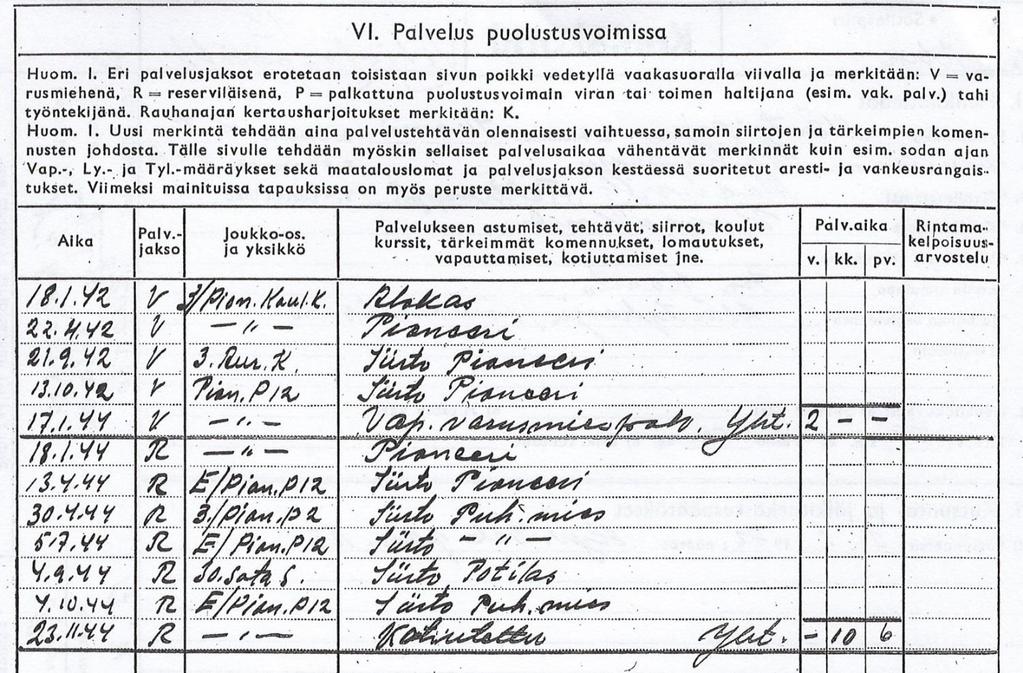 VI. Palvelus puolustusvoimissa
Huom. I. Eri palvelusjaksot erotetaan toisistaan sivun poikki vedetyllä vaakasuoralla viivalla ja merkitään: V = va-
rusmiehenä, R = reserviläisenä, P = palkattuna puolustusvoimain viran tai toimen haltijana (esim. vak. palv.) tahi
työntekijänä. Rauhanajan kertausharjoitukset merkitään: K.
Huom. I. Uusi merkintä tehdään aina palvelustehtävän olennaisesti vaihtuessa, samoin siirtojen ja tärkeimpien komen-
nusten johdosta. Tälle sivulle tehdään myöskin sellaiset palvelusaikaa vähentävät merkinnät kuin esim. sodan ajan
Vap.-, Ly.- ja Tyl.-määräykset sekä maatalouslomat ja palvelusjakson kestäessä suoritetut aresti- ja vankeusrangais-
tukset. Viimeksi mainituissa tapauksissa on myös peruste merkittävä.
Aika Palv.-jakso Joukko-os. ja yksikkö Palvelukseen astumiset, tehtävät, siirrot, koulut kurssit, tärkeimmät komennukset, lomautukset, vapauttamiset, kotiuttamiset jne. Palv.aika v. kk. pv. Rintama-kelpoisuus-arvostelu
18.1.42 V /Pion.Koul.K. Alokas
22.4.42 V — " — Pioneeri
21.9.42 V 3. K. Siirto Pioneeri
13.10.42 V Pion.P12 Siirto Pioneeri
17.1.44 V — " — Vap. varusmiespalv. Yht. 2 - -
18.1.44 R — " — Pioneeri
13.4.44 R E/Pion.P12 Siirto Pioneeri
30.4.44 R 3./Pion.P2 Siirto Puh.mies
5.7.44 R E/Pion.P12 Siirto — " —
4.9.44 R Siirto Potilas
4.10.44 R E/Pion.P12 Siirto Puh.mies
23.11.44 R — " — Kotiutettu Yht. - 10 6